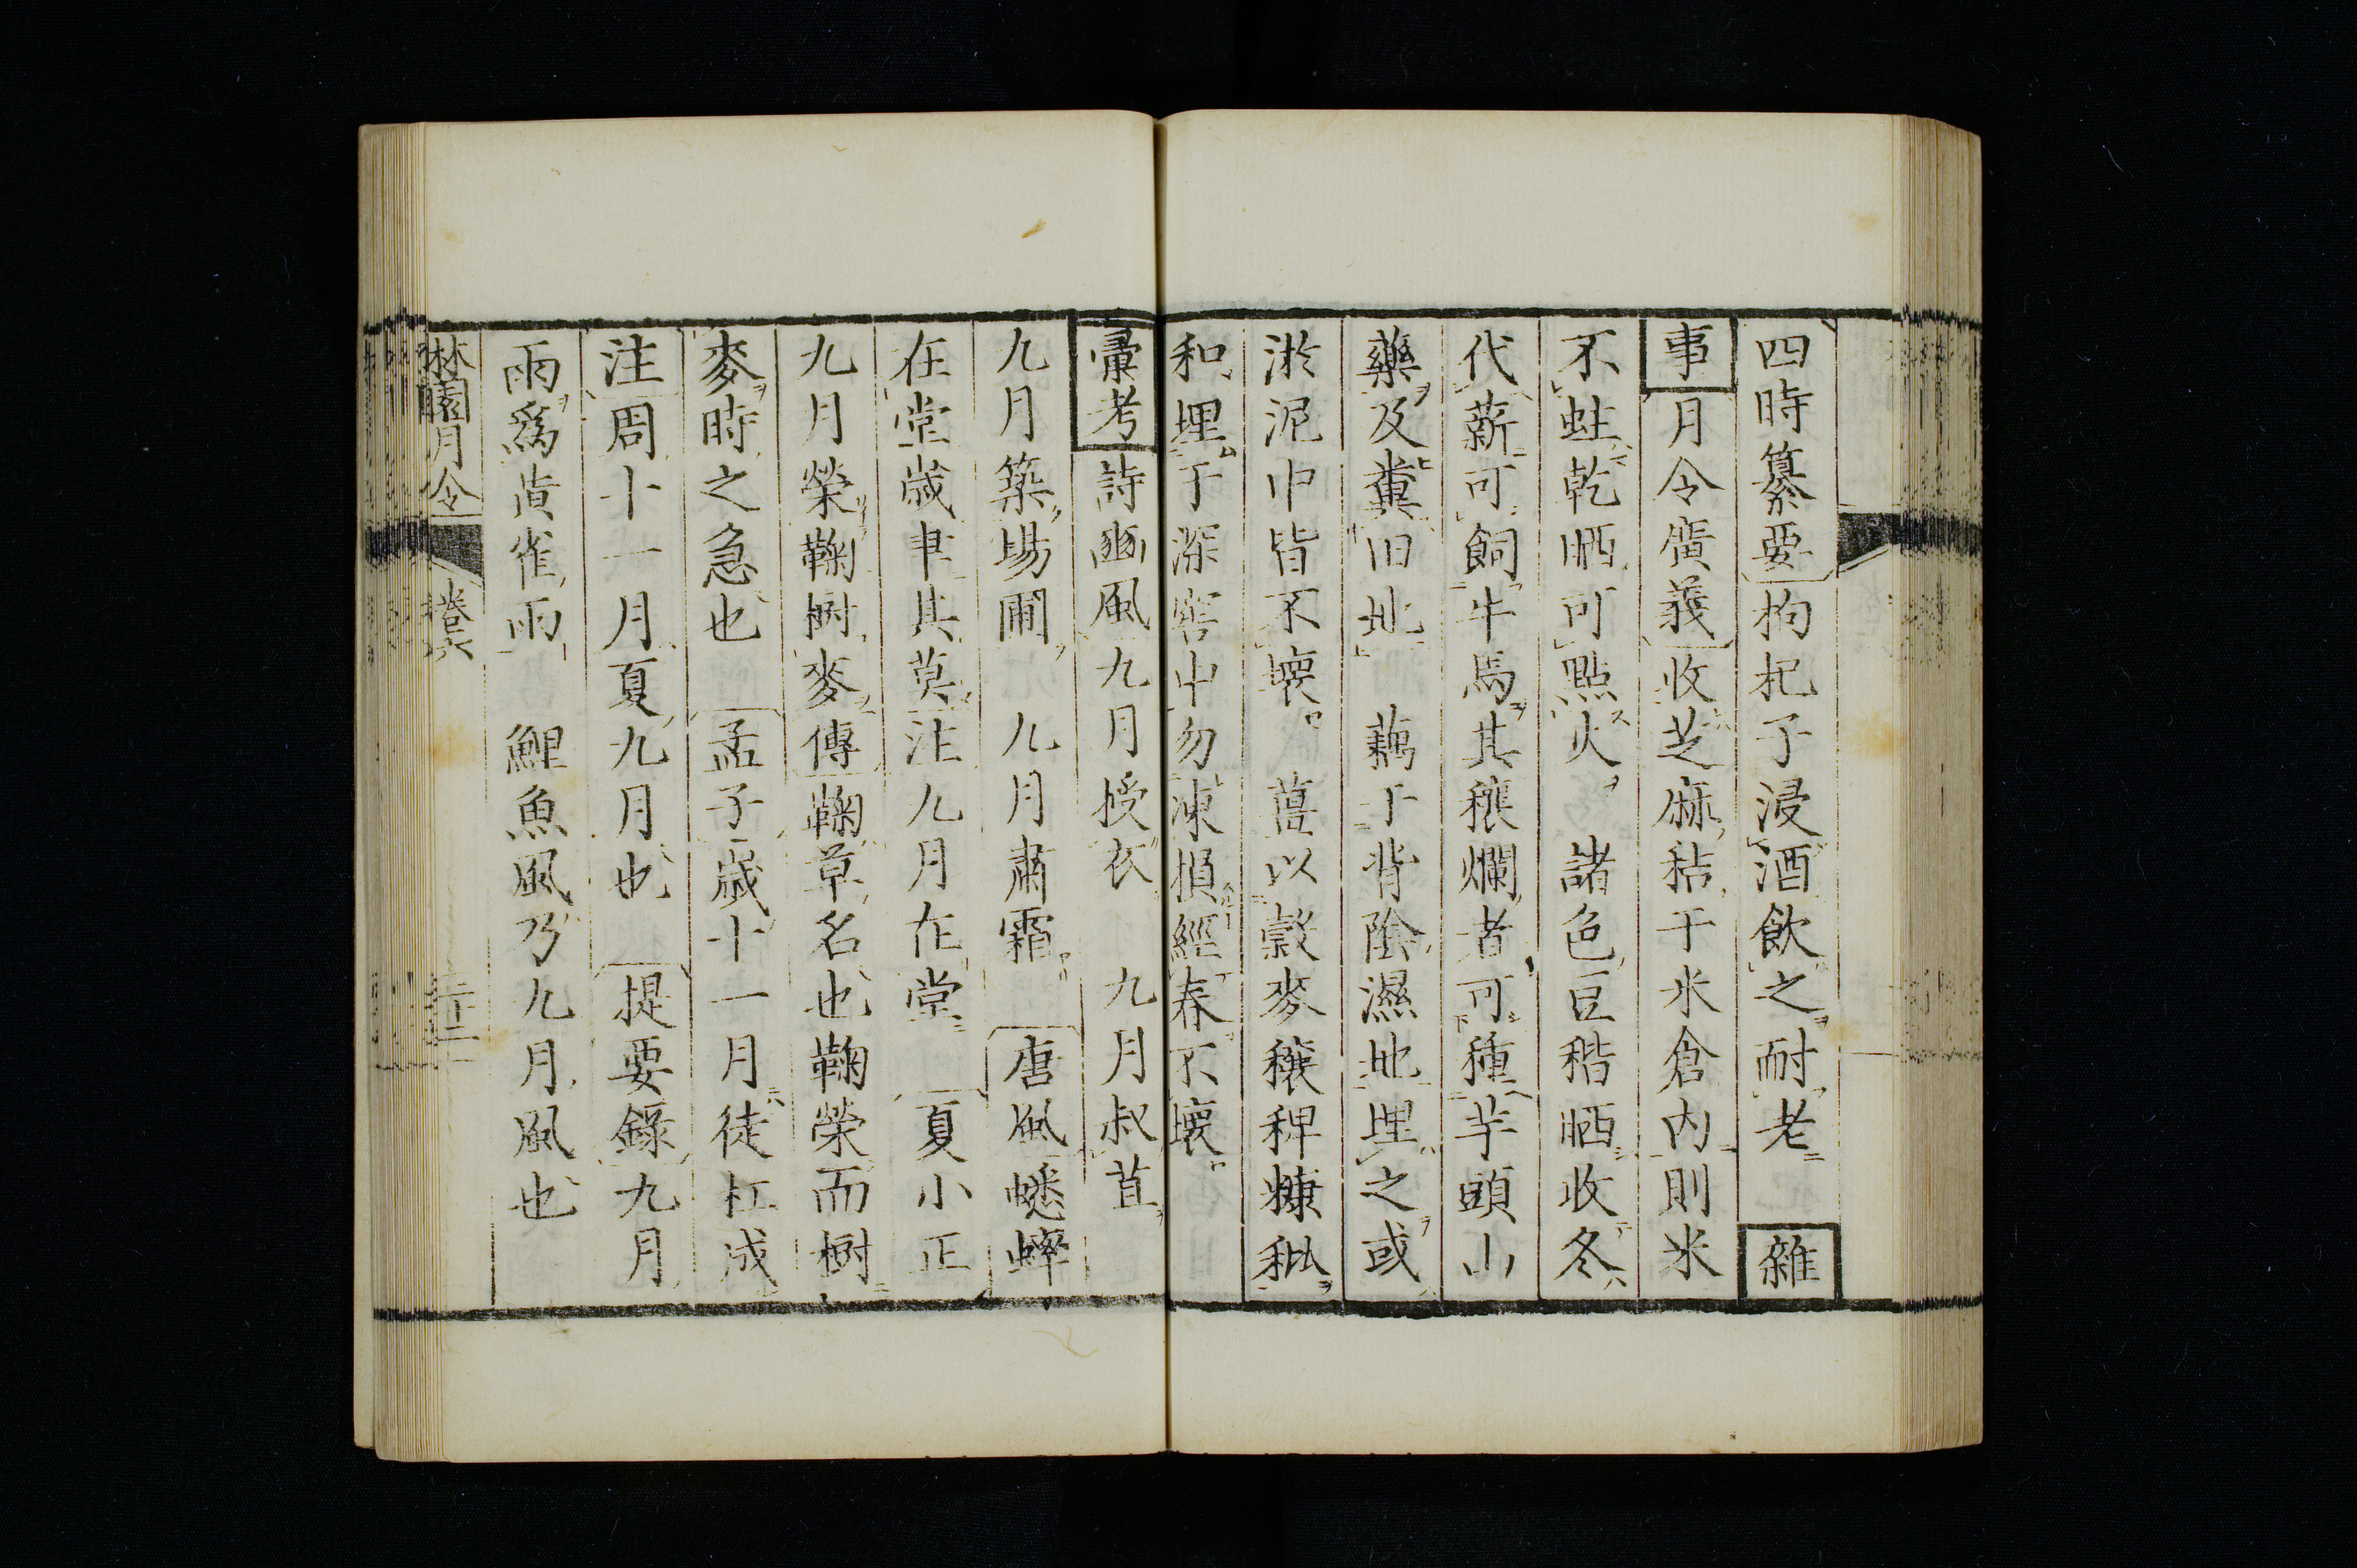 四時纂要枸杞子浸酒飲之耐老　雜
事月令廣義收芝麻秸于米倉内則米
不蛀乾晒可點火　諸色豆稭晒收冬
代薪可飼牛馬其穰爛者可種芋頭山
藥及糞田地　藕于背陰濕地埋之或
淤泥中皆不壞　薑以穀麥穰稗糠秕
和埋于深窖中勿凍損經春不壞
彙考詩豳風九月授衣　九月叔苴
九月築場圃　九月肅霜　唐風蟋蟀
在堂歲聿其莫注九月在堂　夏小正
九月榮鞠樹麥傳鞠草名也鞠榮而樹
麥時之急也　孟子歲十一月徒杠成
注周十一月夏九月也　提要錄九月
雨爲黄雀雨　鯉魚風乃九月風也
林園月令　卷六　二十二